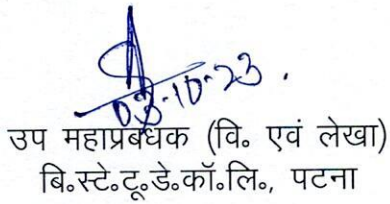 03-10-23.
उप महाप्रबंधक (वि॰ एवं लेखा)
बि॰स्टे॰टू॰डे॰कॉ॰लि॰, पटना